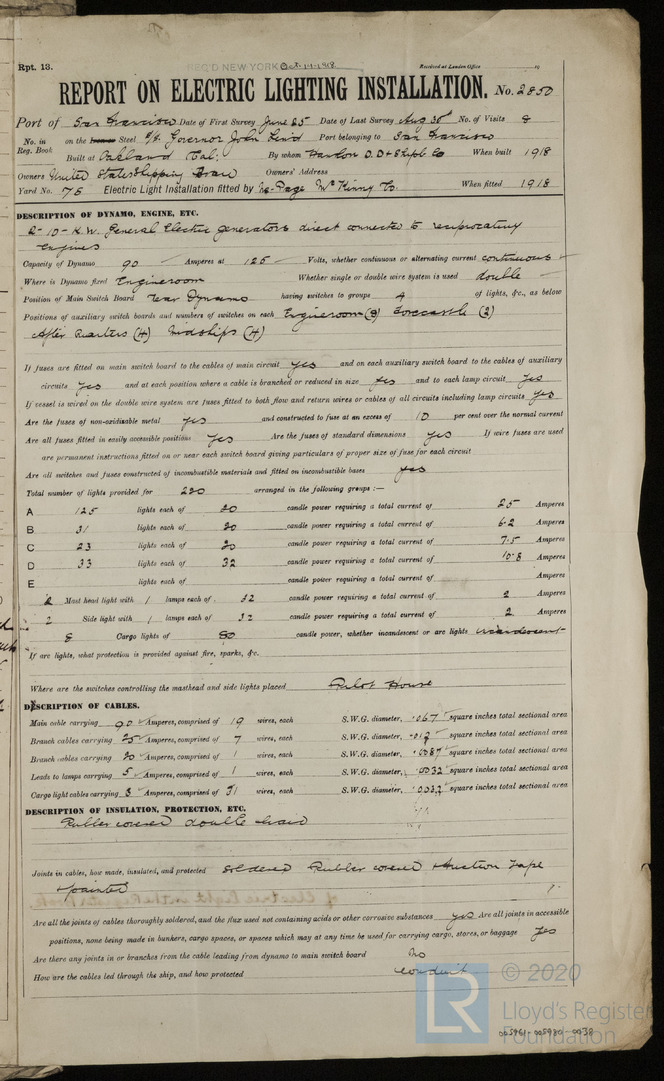 Rpt. 13. REC'D NEW YORK Oct. 11-1918 Received at London Office 19
REPORT ON ELECTRIC LIGHTING INSTALLATION. No. 2850
Port of San Francisco Date of First Survey June 25 Date of Last Survey Aug 30 No. of Visits 8
No. in Reg. Book on the Steel S/S. Governor John Lind Port belonging to San Francisco
Built at Oakland Cal: By whom Hanlon D.D & Shipb Co When built 1918
Owners United States Shipping Board Owners' Address
Yard No. 75 Electric Light Installation fitted by Ne-Page McKinny Co When fitted 1918
DESCRIPTION OF DYNAMO, ENGINE, ETC.
2-10-K.W. General Electric generators direct connected to reciprocating
Engines
Capacity of Dynamo 90 Amperes at 125 Volts, whether continuous or alternating current continuous
Where is Dynamo fixed Engineroom Whether single or double wire system is used double
Position of Main Switch Board near Dynamo having switches to groups 4 of lights, &c., as below
Positions of auxiliary switch boards and numbers of switches on each Engineroom (8) Forecastle (2)
After Quarters (4) Midships (4)
If fuses are fitted on main switch board to the cables of main circuit yes and on each auxiliary switch board to the cables of auxiliary
circuits yes and at each position where a cable is branched or reduced in size yes and to each lamp circuit yes
If vessel is wired on the double wire system are fuses fitted to both flow and return wires or cables of all circuits including lamp circuits yes
Are the fuses of non-oxidizable metal yes and constructed to fuse at an excess of 10 per cent over the normal current
Are all fuses fitted in easily accessible positions yes Are the fuses of standard dimensions yes If wire fuses are used
are permanent instructions fitted on or near each switch board giving particulars of proper size of fuse for each circuit
Are all switches and fuses constructed of incombustible materials and fitted on incombustible bases yes
Total number of lights provided for 220 arranged in the following groups :—
A 125 lights each of 20 candle power requiring a total current of 25 Amperes
B 31 lights each of 20 candle power requiring a total current of 6.2 Amperes
C 23 lights each of 20 candle power requiring a total current of 7.5 Amperes
D 33 lights each of 32 candle power requiring a total current of 10.8 Amperes
E lights each of candle power requiring a total current of Amperes
2 Mast head light with 1 lamps each of 32 candle power requiring a total current of 2 Amperes
2 Side light with 1 lamps each of 32 candle power requiring a total current of 2 Amperes
8 Cargo lights of 80 candle power, whether incandescent or arc lights incandescent
If arc lights, what protection is provided against fire, sparks, &c.
Where are the switches controlling the masthead and side lights placed Pilot House
DESCRIPTION OF CABLES.
Main cable carrying 90 Amperes, comprised of 19 wires, each S.W.G. diameter, .067 square inches total sectional area
Branch cables carrying 25 Amperes, comprised of 7 wires, each S.W.G. diameter, square inches total sectional area
Branch cables carrying 20 Amperes, comprised of 1 wires, each S.W.G. diameter, .0087 square inches total sectional area
Leads to lamps carrying 5 Amperes, comprised of 1 wires, each S.W.G. diameter, .0032 square inches total sectional area
Cargo light cables carrying 3 Amperes, comprised of wires, each S.W.G. diameter, .0032 square inches total sectional area
DESCRIPTION OF INSULATION, PROTECTION, ETC.
Rubber covered double braid
Joints in cables, how made, insulated, and protected Soldered Rubber covered & friction tape
& painted
Are all the joints of cables thoroughly soldered, and the flux used not containing acids or other corrosive substances yes Are all joints in accessible
positions, none being made in bunkers, cargo spaces, or spaces which may at any time be used for carrying cargo, stores, or baggage yes
Are there any joints in or branches from the cable leading from dynamo to main switch board no
How are the cables led through the ship, and how protected conduit
LR © 2020
Lloyd's Register
Foundation
005961-005980-0038